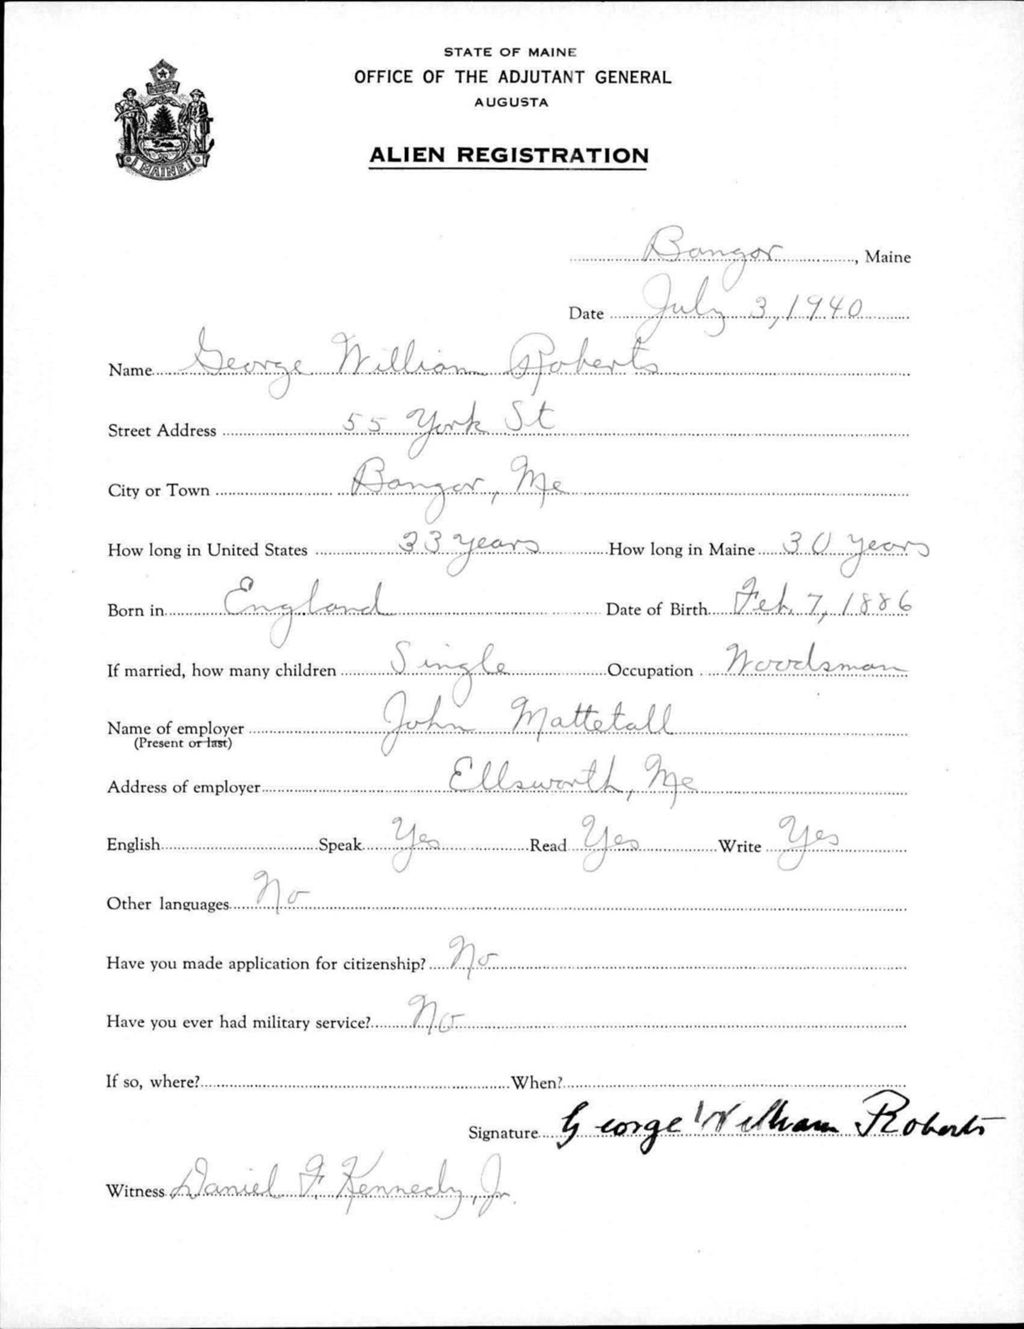 STATE OF MAINE
OFFICE OF THE ADJUTANT GENERAL
AUGUSTA
ALIEN REGISTRATION
MAINE
Bangor, Maine
Date July 3, 1940
Name George William Roberts
Street Address 55 York St
City or Town Bangor, Me
How long in United States 33 years How long in Maine 30 years
Born in England Date of Birth Feb. 7, 1886
If married, how many children Single Occupation Woodsman
Name of employer John Mattetall
(Present or last)
Address of employer Ellsworth, Me
English Speak Yes Read Yes Write Yes
Other languages No
Have you made application for citizenship? No
Have you ever had military service? No
If so, where? When?
Signature George William Roberts
Witness Daniel F. Kennedy, Jr.